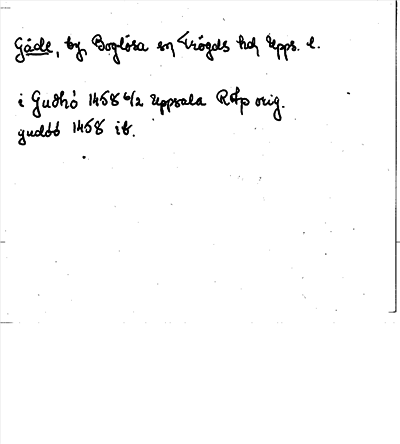 Gåde, by, Boglösa sn Trögds hd, Upps. l.
i Gudhó 1458 6/2 Uppsala RAp orig.
gudóó 1458 ib.